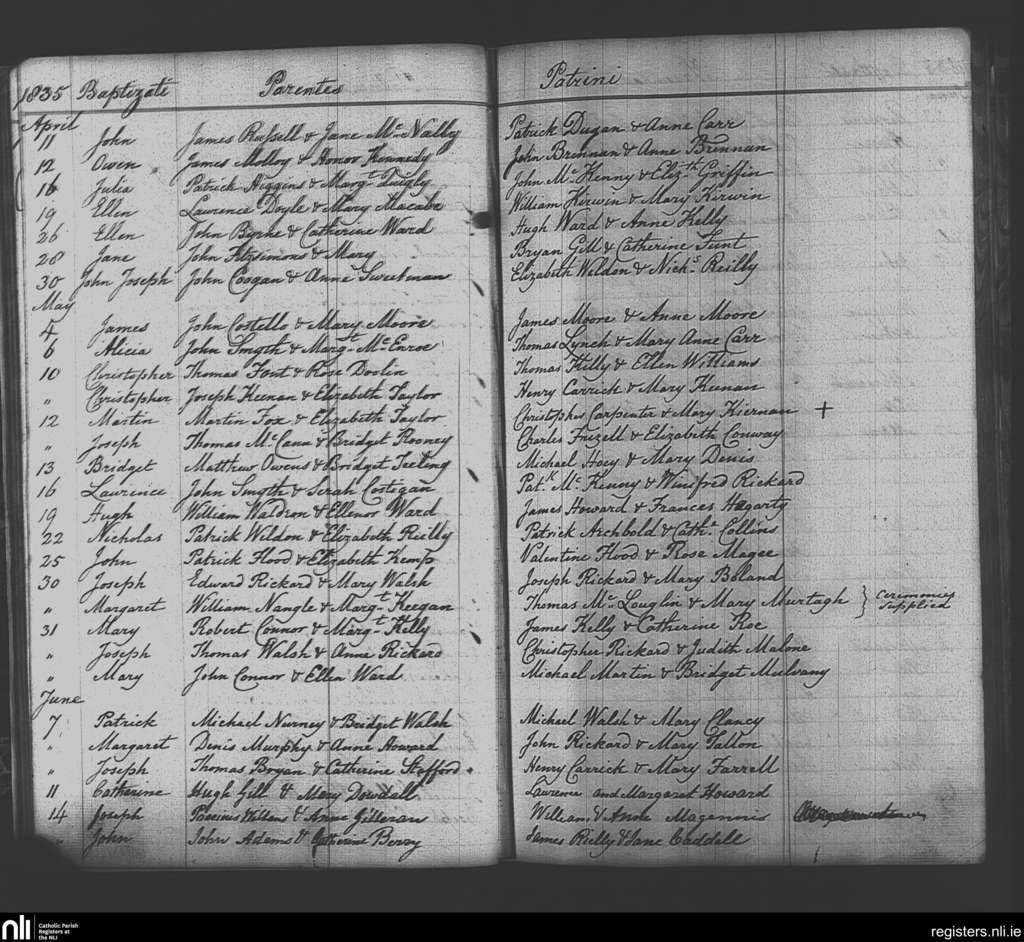 1835 Baptizati Parentes Patrini
April
11 John James Russell & Jane Mc Nally Patrick Dugan & Anne Carr
12 Owen James Molloy & Honor Kennedy John Brennan & Anne Brennan
16 Julia Patrick Higgins & Margt. Quigly John Mc Kenny & Elizth Griffin
19 Ellen Lawrence Doyle & Mary Macabe William Kerwin & Mary Kerwin
26 Ellen John Byrne & Catherine Ward Hugh Ward & Anne Kelly
28 Jane John Fitzsimons & Mary Bryan Gill & Catherine Funt
30 John Joseph John Coogan & Anne Sweetman Elizabeth Weldon & Nichs. Reilly
May
4 James John Costello & Mary Moore James Moore & Anne Moore
6 Alicia John Smyth & Margt. Mc Enroe Thomas Lynch & Mary Anne Carr
10 Christopher Thomas Fent & Rose Doolin Thomas Kelly & Ellen Williams
" Christopher Joseph Keenan & Elizabeth Taylor Henry Carrick & Mary Keenan
12 Martin Martin Fox & Elizabeth Taylor Christopher Carpenter & Mary Kiernan +
" Joseph Thomas Mc Cann & Bridget Rooney Charles Frizell & Elizabeth Conway
13 Bridget Matthew Owens & Bridget Teeling Michael Hoey & Mary Denis
16 Lawrence John Smyth & Serah Costegan Patk. Mc Kenny & Winifred Rickard
19 Hugh William Waldron & Ellenor Ward James Howard & Frances Hagarty
22 Nicholas Patrick Wildon & Elizabeth Reilly Patrick Archbold & Cathe. Collins
25 John Patrick Flood & Elizabeth Kemp Valentine Flood & Rose Magee
30 Joseph Edward Rickard & Mary Walsh Joseph Rickard & Mary Boland
" Margaret William Nangle & Margt. Keegan Thomas Mc Louglin & Mary Murtagh } Ceremonies supplied
31 Mary Robert Connor & Margt. Kelly James Kelly & Catherine Roe
" Joseph Thomas Walsh & Anne Rickard Christopher Rickard & Judith Malone
" Mary John Connor & Ellen Ward Michael Martin & Bridget Mulvany
June
7 Patrick Michael Nurney & Bridget Walsh Michael Walsh & Mary Clancy
" Margaret Denis Murphy & Anne Howard John Rickard & Mary Tallon
" Joseph Thomas Bryan & Catherine Stafford Henry Carrick & Mary Farrell
11 Catherine Hugh Gill & Mary Dowdall Lawrence and Margaret Howard
14 Joseph & Anne Gilleran William & Anne Magennis
" John John Adams & Catherine Berry James Reilly & Jane Caddell
nli Catholic Parish
Registers at
the NLI
registers.nli.ie